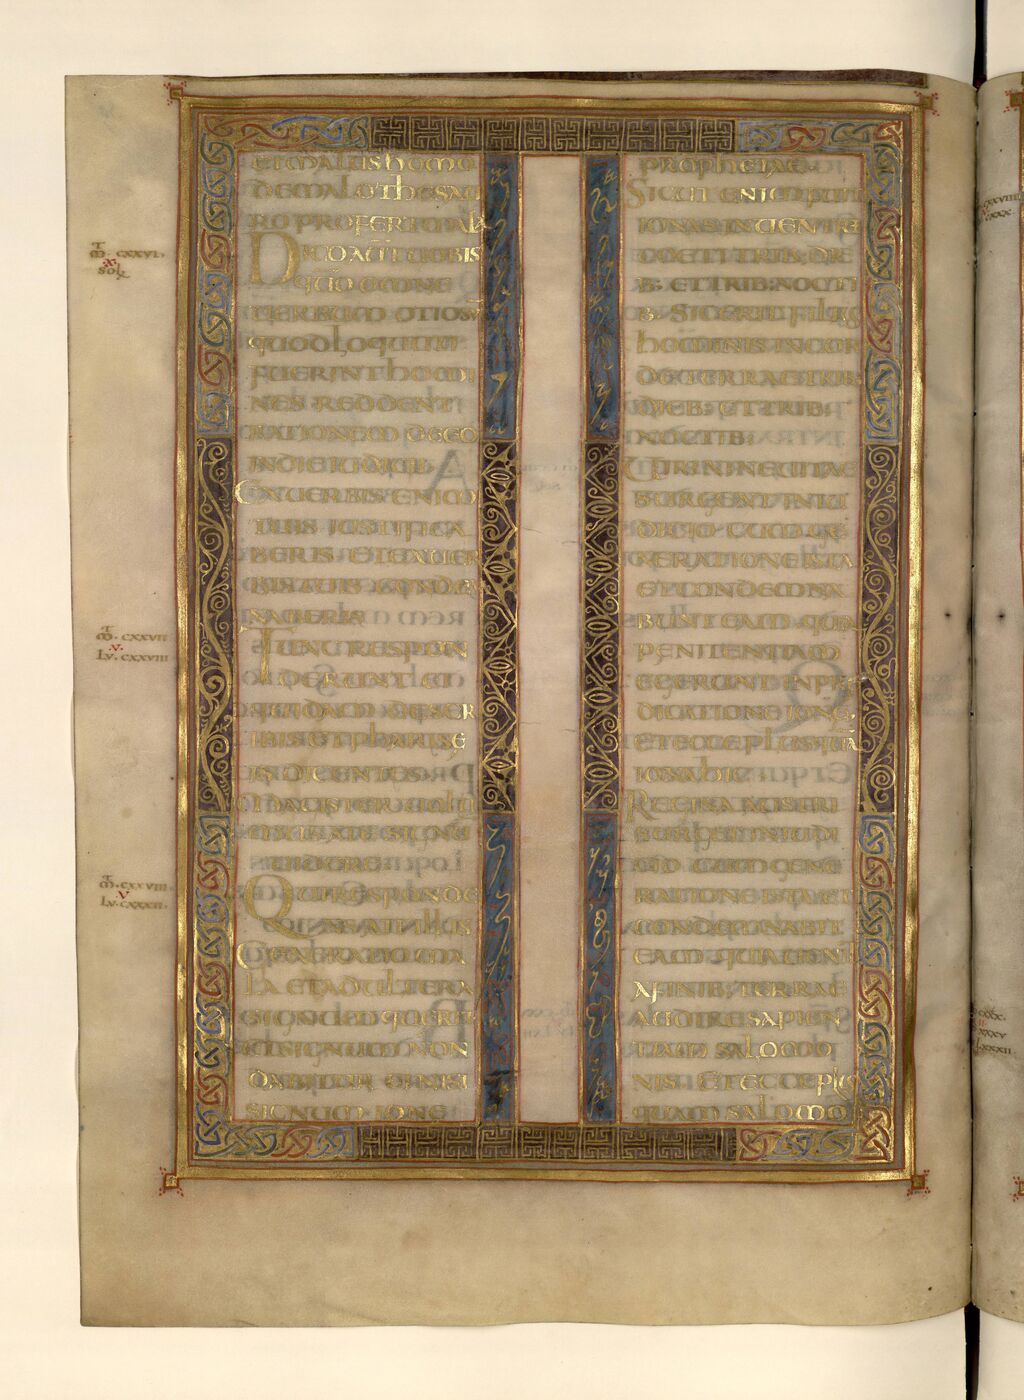 et malus homo
de malo thesau
ro profert mala
Dico autē uobis
quō omne
uerbum otiosū
quod locuti
fuerint homi
nes reddent
rationem de eo
in die iudicii
Ex uerbis enim
tuis iustifica
beris et ex uer
bis tuis condē
naueris
Tunc respon
derunt ei
quidam de scr
ibis et pharise
is dicentes
magister uolu
mus a te signū
uidere
Qui respondē
ait illis
Generatio ma
la et adultera
signum querit
et signum non
dabitur ei nisi
signum ione
prophetae
Sicut enim fuit
ionas in uentre
coeti trib; die
b; et trib; nocti
b; sic erit filius
hominis in cor
de terrae trib;
dieb; et trib;
noctib;
Uiri nineuitae
surgent in iu
dicio cum ge
neratione ista
et condemna
bunt eam quia
penitentiam
egerunt in pre
dicatione ione
et ecce plus quā
iona hic
Regina austri
surget in iudi
cio cum gene
ratione ista et
condemnabit
eam quia uenit
a finib; terrae
audire sapien
tiam salomo
nis et ecce plus
quam salomo
m̄ cxxvi
x
sol
m̄ cxxvii
v
Lv cxxviii
m̄ cxxviii
v
Lv cxxxii